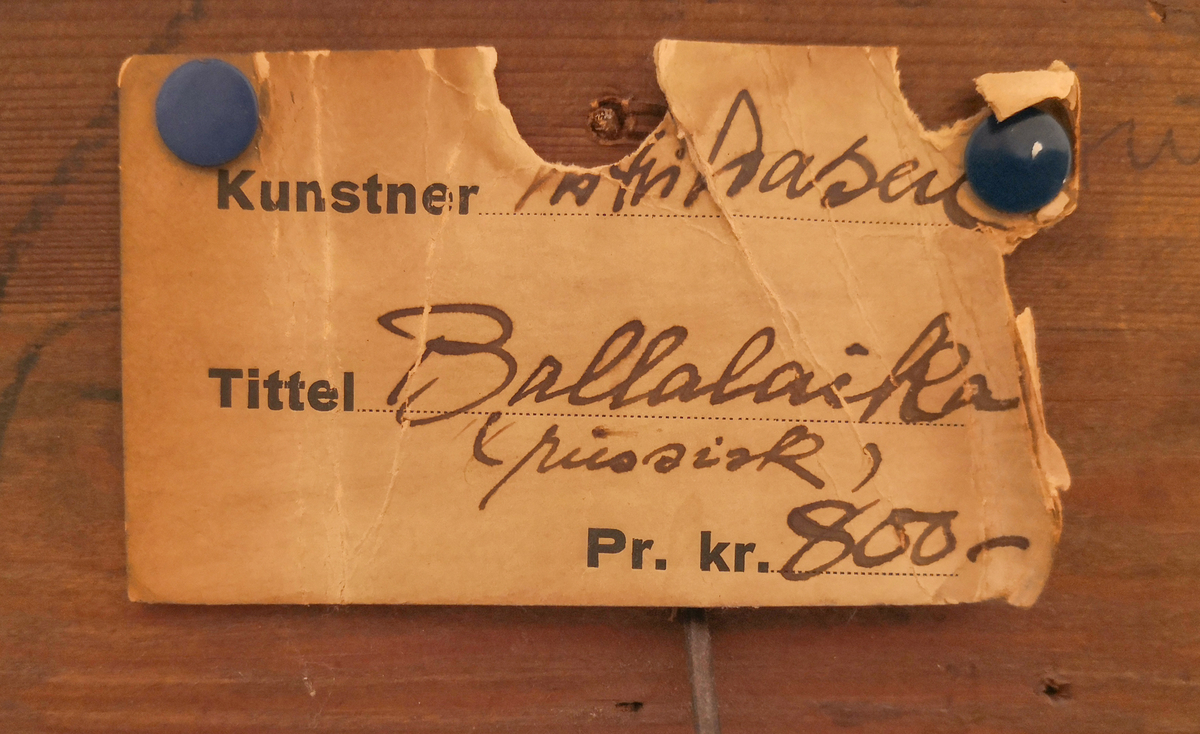 Kunstner
Tittel Ballalaika
(russisk)
Pr. kr. 800-